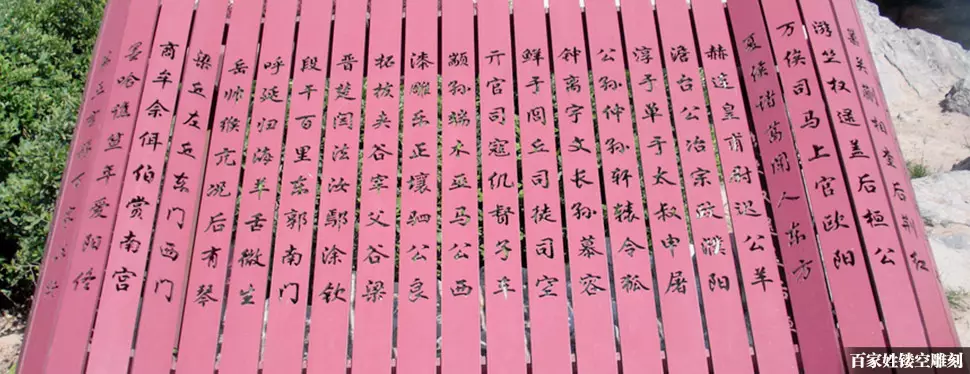 关蒯相查后荆红
游竺权逯盖后桓公
万俟司马上官欧阳
夏侯诸葛闻人东方
赫连皇甫尉迟公羊
澹台公冶宗政濮阳
淳于单于太叔申屠
公孙仲孙轩辕令狐
钟离宇文长孙慕容
鲜于闾丘司徒司空
亓官司寇仉督子车
颛孙端木巫马公西
漆雕乐正壤驷公良
拓拔夹谷宰父谷梁
晋楚闫法汝鄢涂钦
段干百里东郭南门
呼延归海羊舌微生
岳帅缑亢况后有琴
梁丘左丘东门西门
商牟佘佴伯赏南宫
墨哈谯笪年爱阳佟
百家姓镂空雕刻